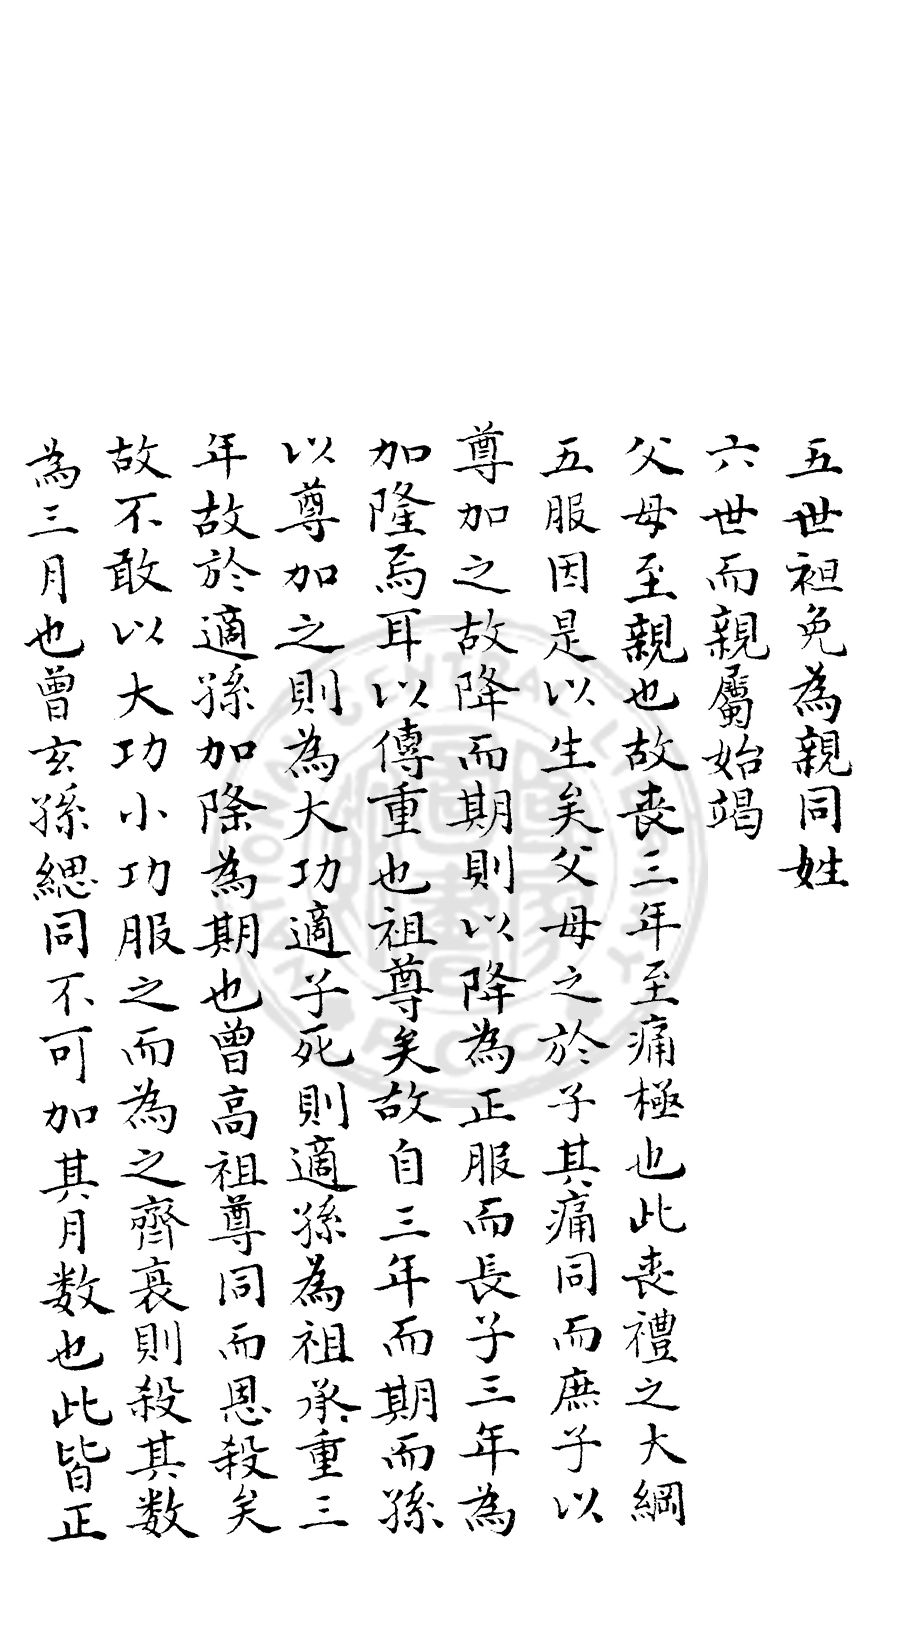 五世袒免為親同姓
六世而親屬始竭
父母至親也故喪三年至痛極也此喪禮之大綱
五服因是以生矣父母之於子其痛同而庶子以
尊加之故降而期則以降為正服而長子三年為
加隆焉耳以傳重也祖尊矣故自三年而期而孫
以尊加之則為大功適子死則適孫為祖承重三
年故於適孫加隆為期也曾高祖尊同而恩殺矣
故不敢以大功小功服之而為之齊衰則殺其数
為三月也曾玄孫緦同不可加其月数也此皆正